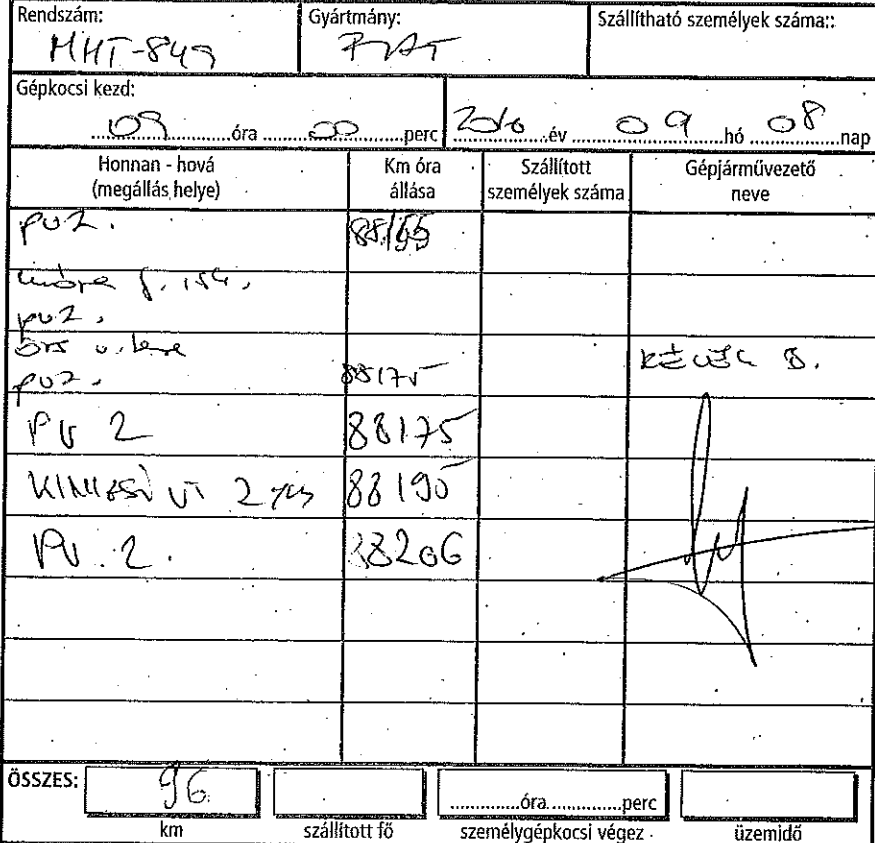 Rendszám:
Gyártmány:
Szállítható személyek száma::
MHT-849
FIAT
Gépkocsi kezd:
09 óra 00 perc 2016 év 09 hó 08 nap
Honnan - hová
(megállás helye)
Km óra
állása
Szállított
személyek száma
Gépjárművezető
neve
pu2.
pu2.
Örs v. tere
pu2. 88175
PU 2 88175
2 88190
PU.2. 88206
ÖSSZES: 96
km
szállított fő
óra perc
személygépkocsi végez
üzemidő